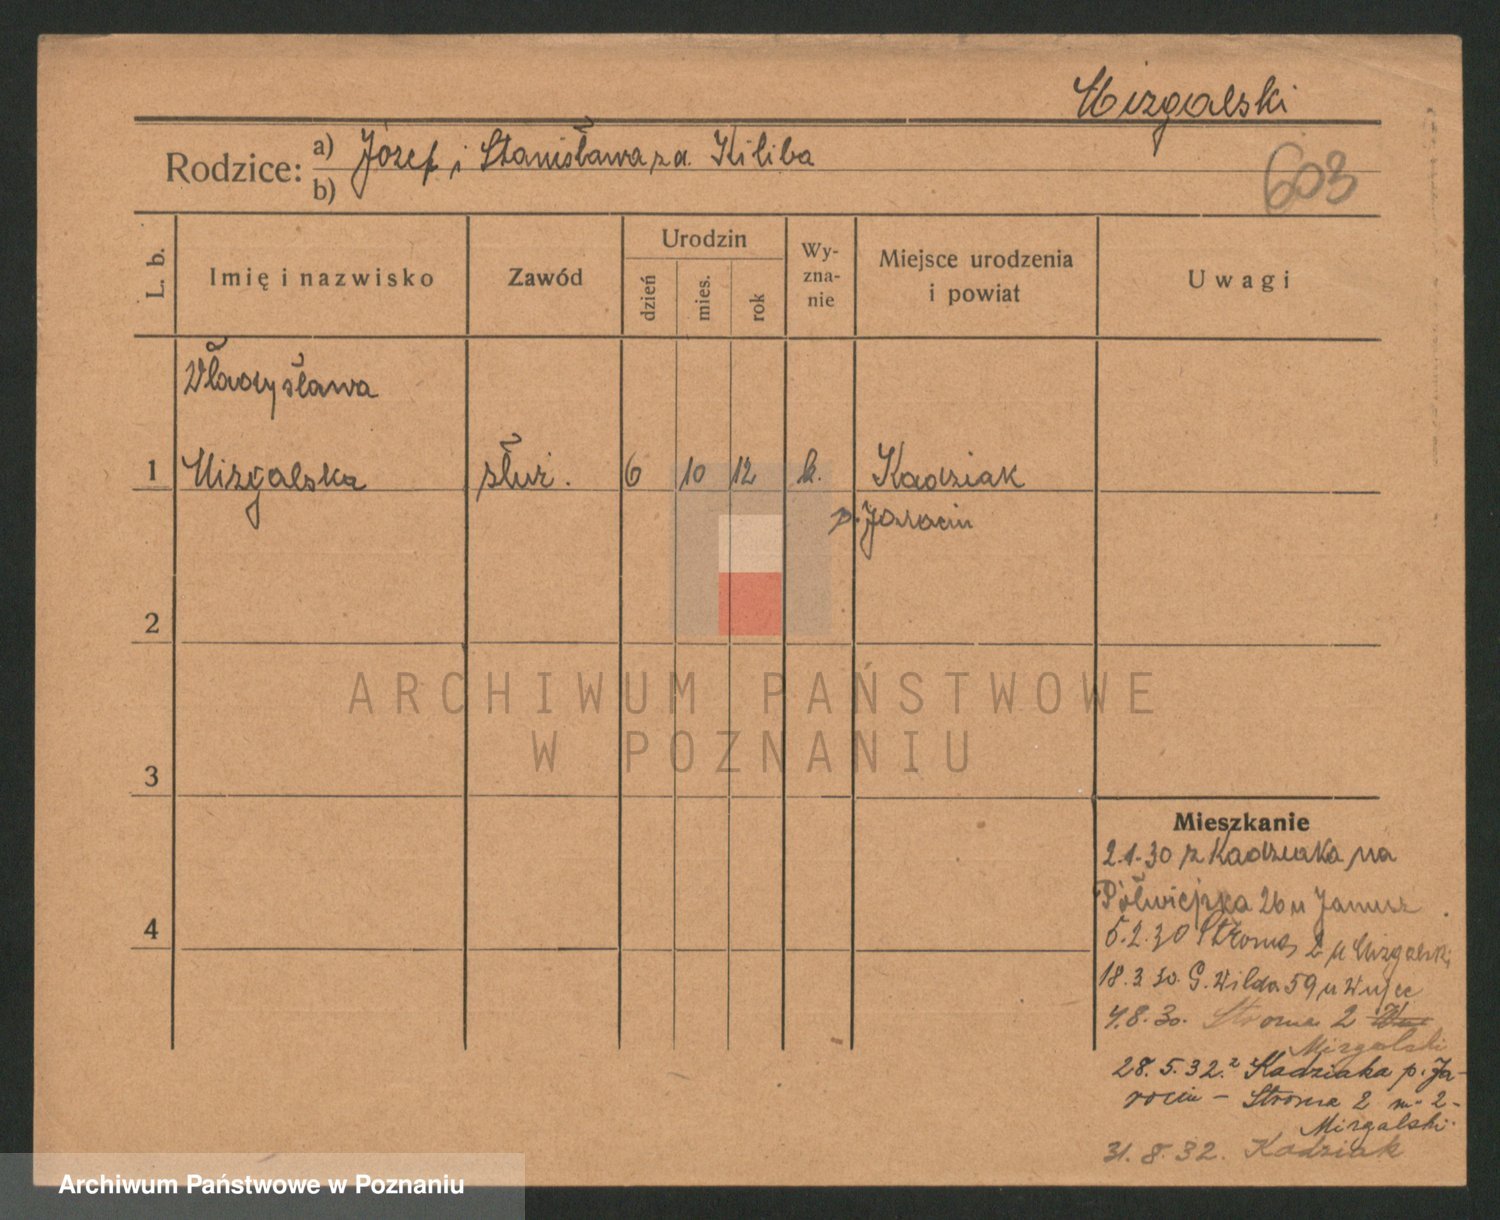 Mizgalski
Rodzice: a) Józef i Stanisława z d. Kiliba
b)
603
L. b.
Imię i nazwisko
Zawód
Urodzin
dzień
mies.
rok
Wy-
zna-
nie
Miejsce urodzenia
i powiat
Uwagi
Władysława
1 Mizgalska służ. 6 10 12 k. Kadziak
p. Jarocin
2
ARCHIWUM PAŃSTWOWE
W POZNANIU
3
Mieszkanie
2.1.30 z Kadziaka na
Półwiejska 26 u Janusz
4
5.2.30 Stroma 2 u Mizgalski
18.3.30. G. Wilda 59 u Wujec
4.8.30. Stroma 2
Mizgalski
28.5.32. z Kadziaka p. Ja-
rocin - Stroma 2 m. 2-
Mizgalski.
31.8.32. Kadziak
Archiwum Państwowe w Poznaniu